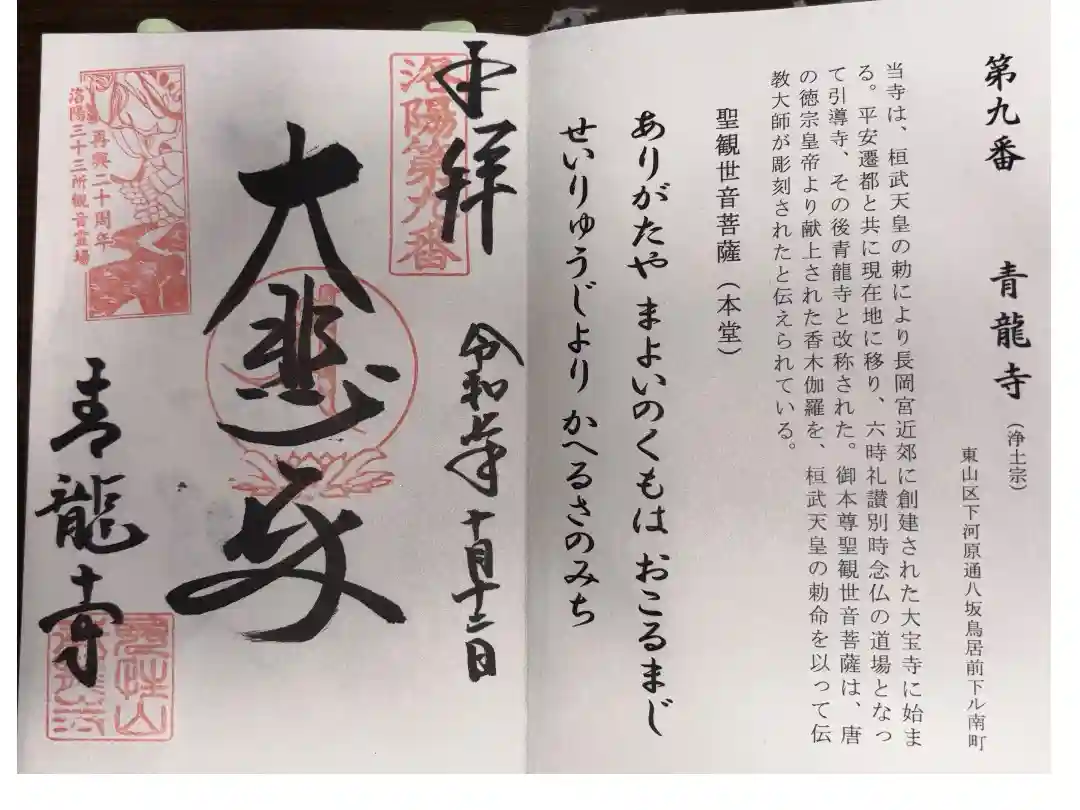 第九番　青龍寺（浄土宗）
東山区下河原通八坂鳥居前下ル南町
当寺は、桓武天皇の勅により長岡宮近郊に創建された大宝寺に始ま
る。平安遷都と共に現在地に移り、六時礼讃別時念仏の道場となっ
て引導寺、その後青龍寺と改称された。御本尊聖観世音菩薩は、唐
の徳宗皇帝より献上された香木伽羅を、桓武天皇の勅命を以って伝
教大師が彫刻されたと伝えられている。
聖観世音菩薩（本堂）
ありがたや まよいのくもは おこるまじ
せいりゅうじより かへるさのみち
奉拝
洛陽第九番
令和六年十月十二日
大悲殿
再興二十周年
洛陽三十三所観音霊場
青龍寺